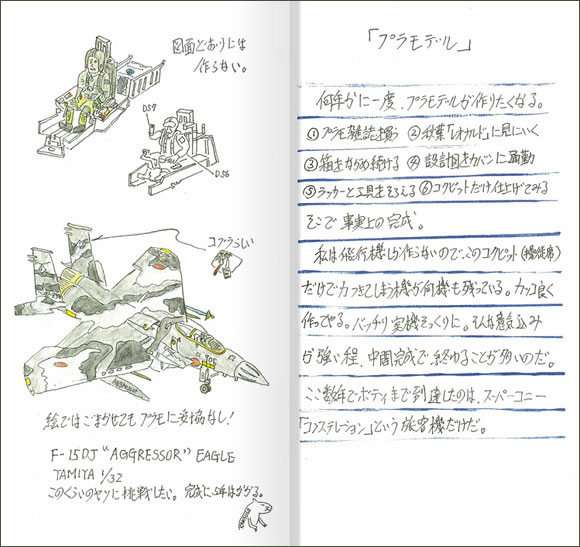 図面どおりには
作らない。
D57
D56
コブラらしい
絵ではごまかせてもプラモに妥協なし!
F-15DJ "AGGRESSOR" EAGLE
TAMIYA 1/32
このくらいのヤツに挑戦したい。完成に5年はかかる。
「プラモデル」
何年かに一度、プラモデルが作りたくなる。
①プラモ雑誌を買う ②秋葉「レオナルド」に見にいく
③箱をながめ続ける ④設計図をカバンに通勤
⑤ラッカーと工具をそろえる ⑥コクピットだけ仕上げてみる
そこで事実上の完成。
私は飛行機しか作らないので、このコクピット(操縦席)
だけで力つきてしまう機が何機も残っている。カッコ良く
作ってやる。バッチリ実機そっくりに。そんな意気込み
が強い程、中間完成で終わることが多いのだ。
ここ数年でボディまで到達したのは、スーパーコニー
「コンステレーション」という旅客機だけだ。